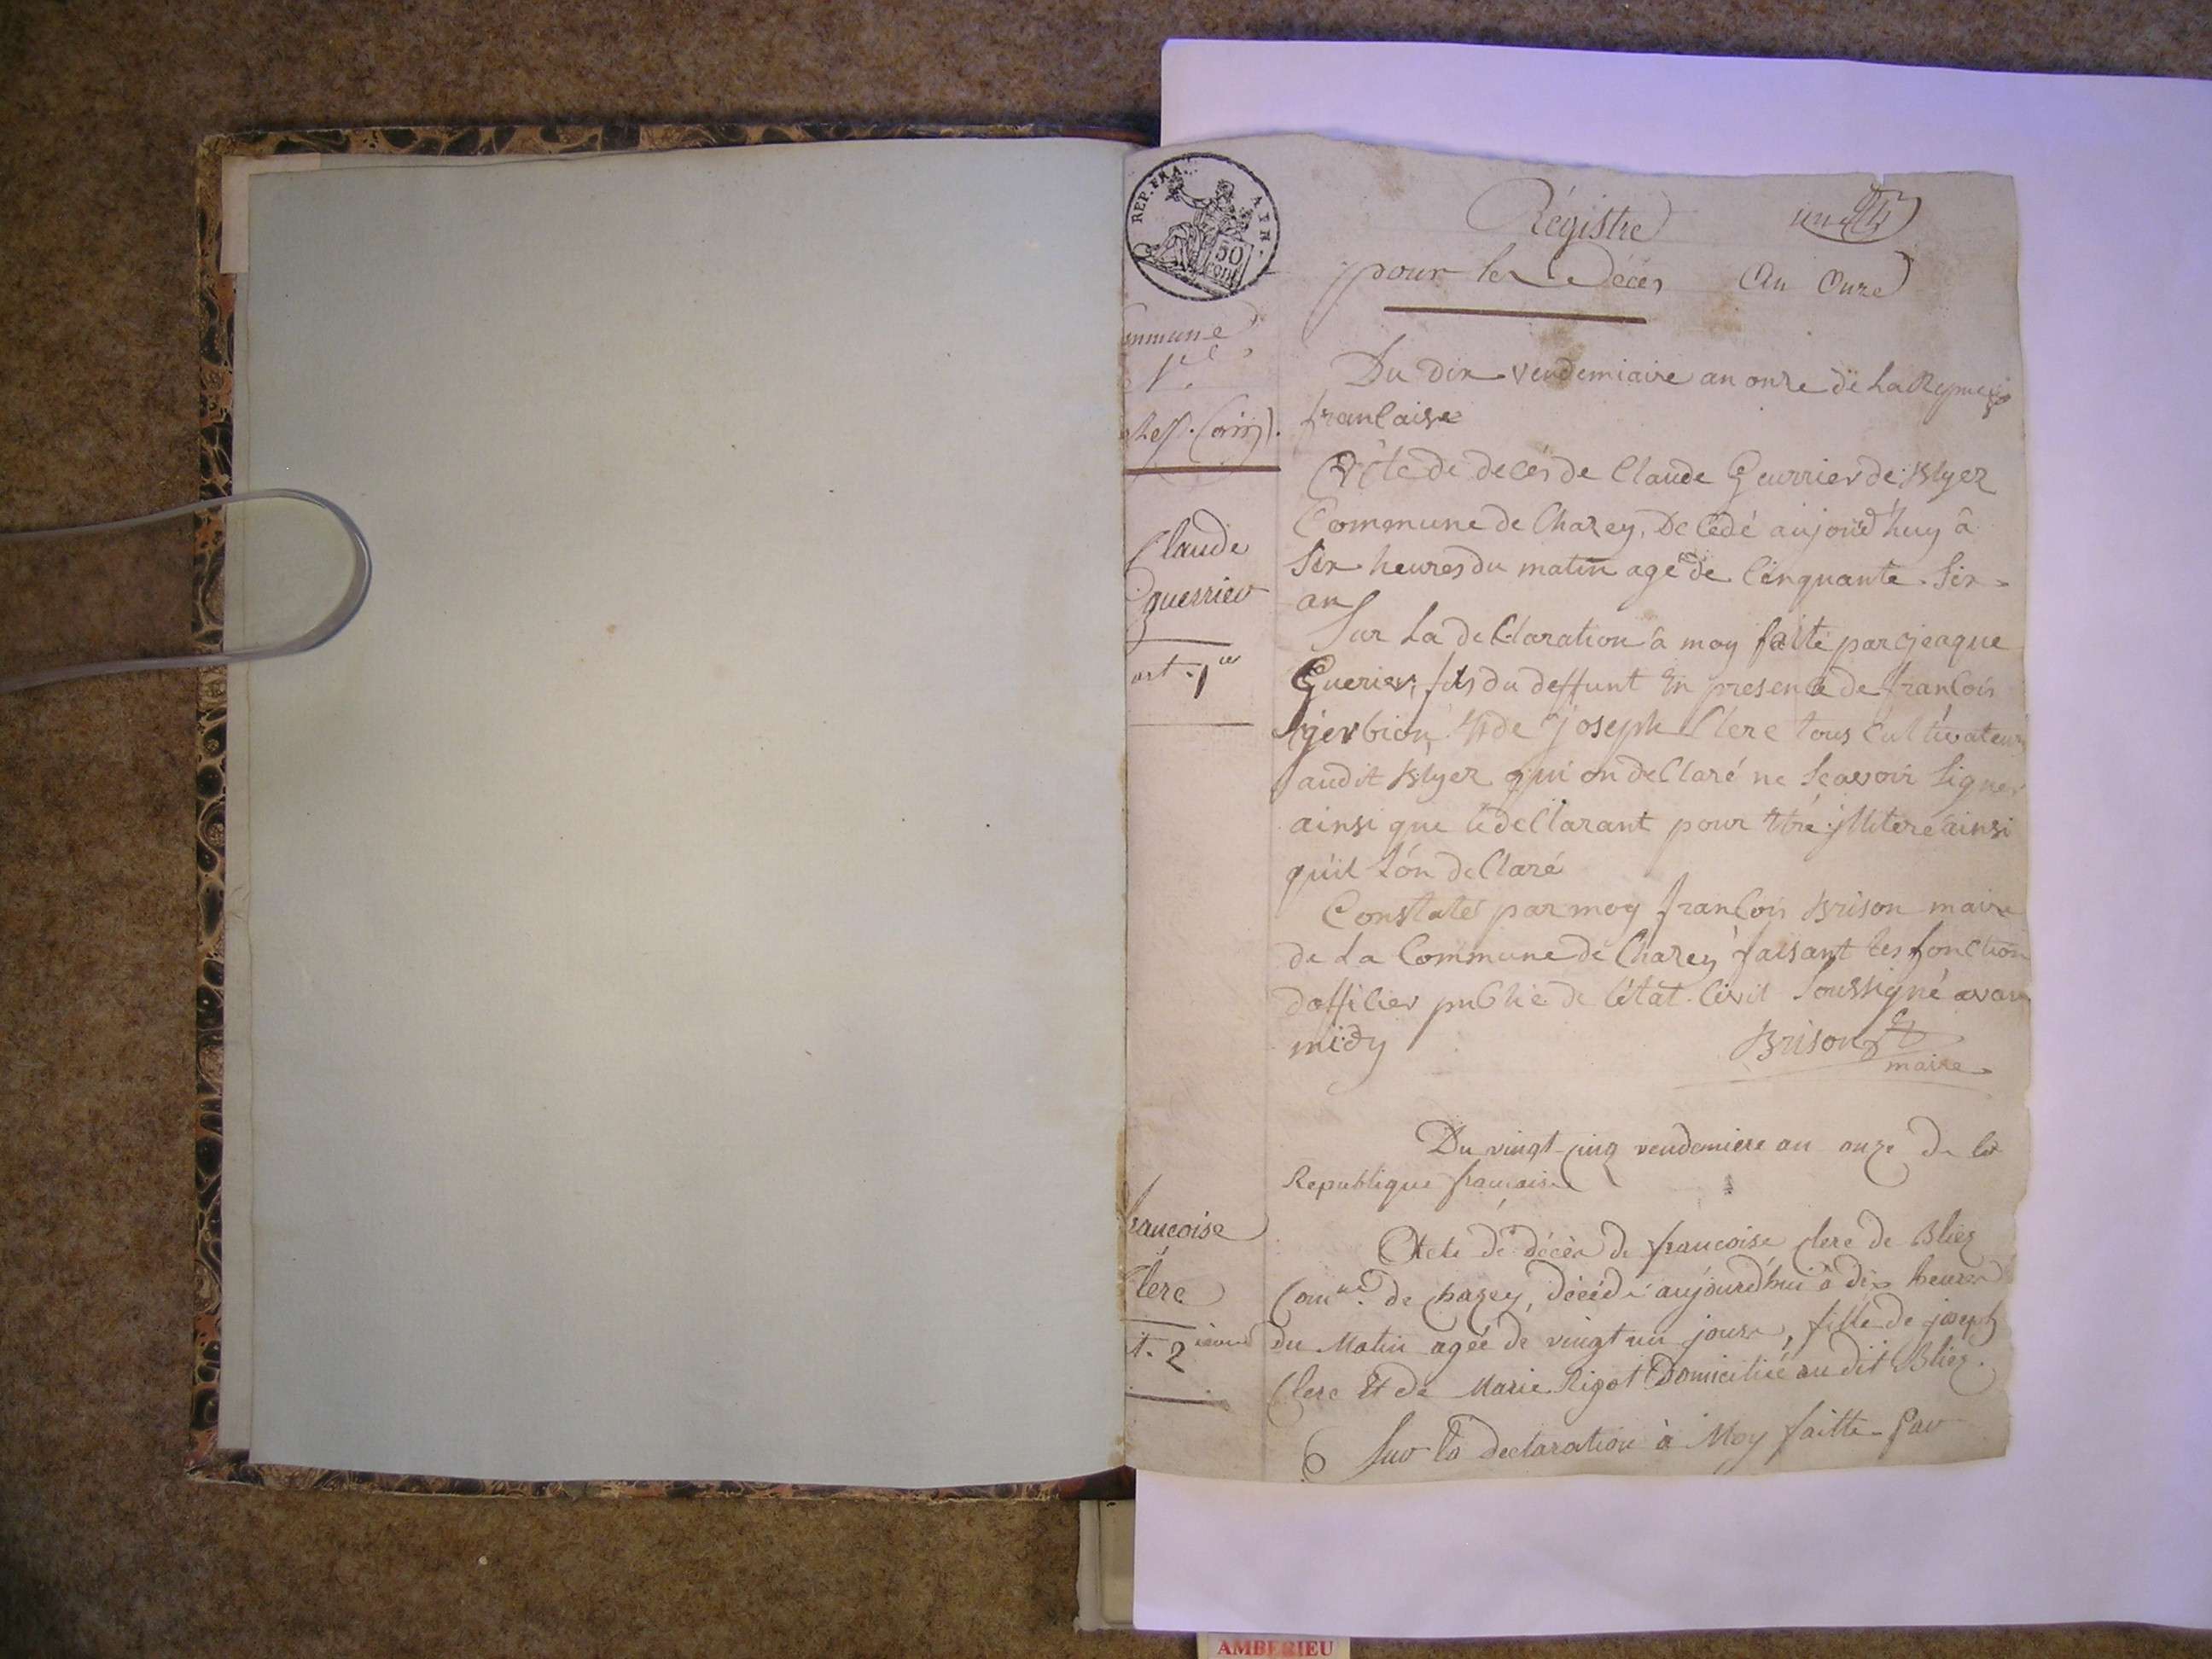 REP. FRA.
50
cent
Régistre
pour les Décès An Onze
ommune
Du dix vendemiaire an onze de La
francaise
Acte de decés de Claude Geurrier de Blyez
Commune de Chazey, Decédé aujourd'huy à
Six heures du matin agé de Cinquante Six
an
Claude
guerrier
art. 1er
Sur La declaration à moy faite par jeaque
Guerier, fils du deffunt En presence de francois
gerbion, Et de joseph Clerc tous Cultivateurs
audit Blyez qui on declaré ne Scavoir Signer
ainsi que le declarant pour Etre illiteré ainsi
quil Lon declaré
Constaté par moy francois Brison maire
de La Commune de Chazey faisant les fonction
dofficier public de l'état Civil Soussigné avan
midy
Brison
maire
Du vingt cinq vendemiere an onze de la
Republique francaise
rancoise
Clerc
t. 2
Acte de décès de francoise Clerc de Bliez
Comne. de chazey, décédé aujourd'hui à dix heures
du Matin agée de vingt un jours, fille de joseph
Clerc Et de Marie Rigot Domicilié au dit Bliez.
Sur la declaration à Moy faitte Par
AMBERIEU